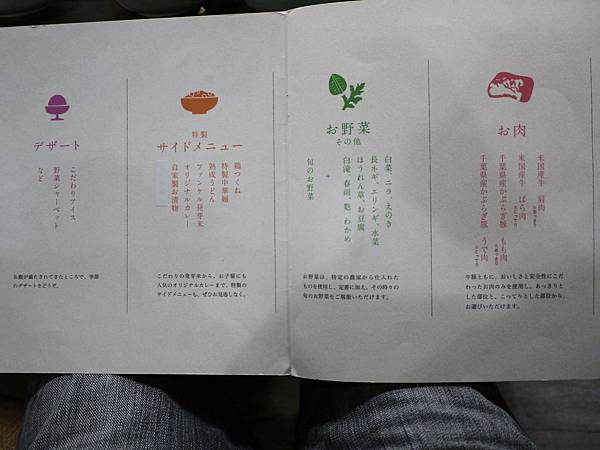 お肉
米国産牛 肩肉
米国産牛 ばら肉
千葉県産かぶらぎ豚 もも肉
千葉県産かぶらぎ豚 うで肉
牛豚ともに、おいしさと安全性にこだ
わったお肉のみを使用し、あっさりと
した部位と、こってりとした部位から、
お選びいただけます。
お野菜
その他
白菜・ニラ・えのき
長ネギ、エリンギ、水菜
ほうれん草、お豆腐
白滝、春雨、麩、わかめ
+
旬のお野菜
お野菜は、特定の農家から仕入れた
ものを使用し、定番に加え、その時々の
旬のお野菜をご堪能いただけます。
特製
サイドメニュー
鶏つくね
特製中華麺
熟成うどん
ファンケル発芽米
オリジナルカレー
自家製お漬物
こだわりの発芽米から、お子様にも
人気のオリジナルカレーまで、特製の
サイドメニューも、ぜひお見逃しなく。
デザート
こだわりアイス
野菜シャーベット
など
お腹が満たされてきたところで、季節
のデザートをどうぞ。